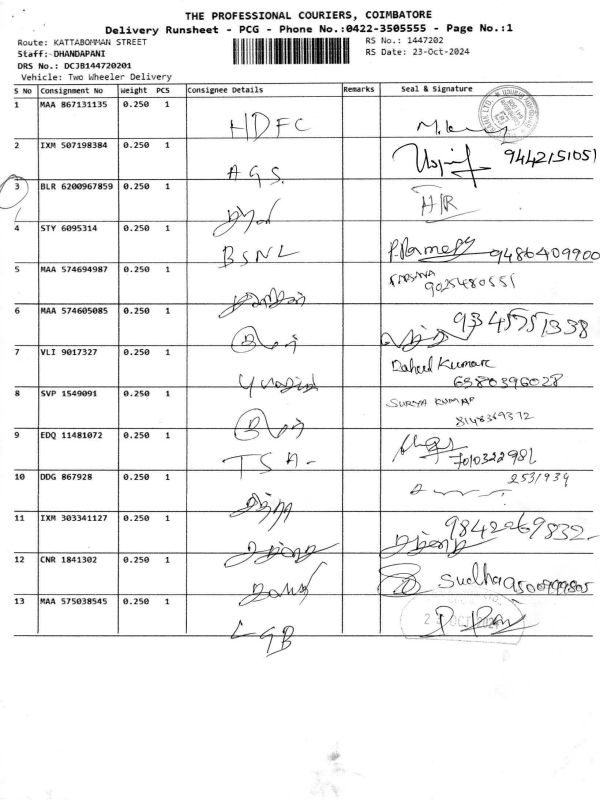 THE PROFESSIONAL COURIERS, COIMBATORE
Delivery Runsheet - PCG - Phone No.:0422-3505555 - Page No.:1
Route: KATTABOMMAN STREET
Staff: DHANDAPANI
DRS No.: DCJB144720201
Vehicle: Two Wheeler Delivery
RS No.: 1447202
RS Date: 23-Oct-2024
S No Consignment No Weight PCS Consignee Details Remarks Seal & Signature
1 MAA 867131135 0.250 1 HDFC
2 IXM 507198384 0.250 1 AGS. 9442151051
3 BLR 6200967859 0.250 1
4 STY 6095314 0.250 1 BSNL 9486409900
5 MAA 574694987 0.250 1 FARSANA
9025480551
6 MAA 574605085 0.250 1
7 VLI 9017327 0.250 1
6380396028
8 SVP 1549091 0.250 1 SURYA KUMAR
8148369372
9 EDQ 11481072 0.250 1 TSA- 7010322981
10 DDG 867928 0.250 1 2531934
11 IXM 303341127 0.250 1 9842269832
12 CNR 1841302 0.250 1 Sudha 9500999805
13 MAA 575038545 0.250 1 LGB